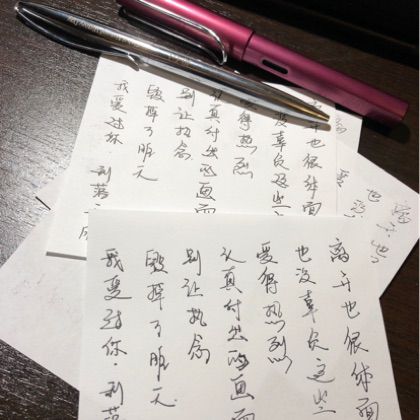 离开也很体面
也没辜负这些
爱得热烈
认真付出的画面
别让执念
毁掉了昨天
我爱过你·利落
也很体面
没辜负这些
得热烈
认真付出的画面
别让执念
毁掉了昨天
我爱过你 利落